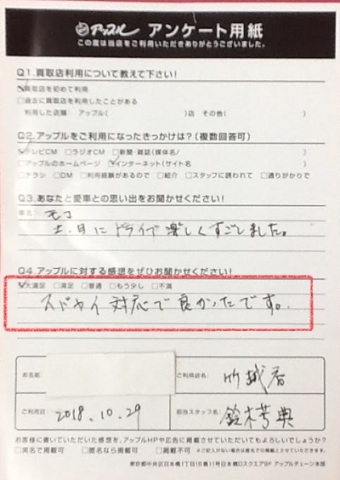 アップル アンケート用紙
この度は当店をご利用いただきありがとうございました。
Q1.買取店利用について教えて下さい!
☑買取店を初めて利用
□過去に買取店を利用したことがある
利用した店舗 アップル( )店 その他( )
Q2.アップルをご利用になったきっかけは?(複数回答可)
☑テレビCM □ラジオCM □新聞・雑誌(媒体名/ )
□アップルのホームページ ☑インターネット(サイト名 )
□チラシ □DM □利用経験があるので □紹介 □スタッフに誘われて □通りがかりで
Q3.あなたと愛車との思い出をお聞かせください!
車名 モコ
土、日にドライブ楽しくすごしました。
Q4.アップルに対する感想をぜひお聞かせください!
☑大満足 □満足 □普通 □もう少し □不満
対応で良かったです。
お名前
ご利用店名
竹城店
ご利用日 2018.10.29
担当スタッフ名 鈴木
お客様に書いていただいた感想を、アップルHPや広告に掲載させていただいてもよろしいでしょうか?
□実名で掲載可 □匿名なら掲載可 □掲載不可 ※ご記入がない場合は匿名での掲載とさせていただきます。
東京都中央区日本橋1丁目16番11号日本橋DスクエアBF アップルチェーン本部